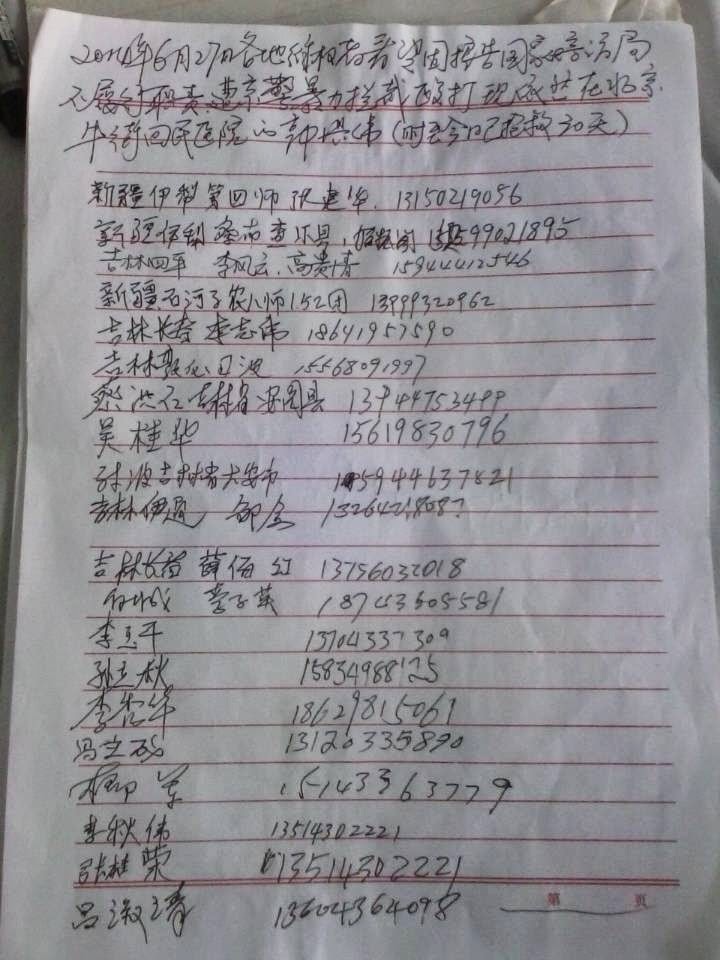 2014年6月27日各地维权者因控告国家信访局
不履行职责遭京警暴力拦截殴打现依然在北京
牛街回民医院的韩洪伟(时至今日已抢救30天)
新疆伊犁第四师 张建华 13150219056
新疆伊犁 99021895
吉林四平 李凤云、高贵清 15944412546
新疆石河子农八师152团 13999320962
吉林长春 李志伟 18641957590
吉林敦化 波 15568091997
蔡洪仁 吉林省安图县 13944753499
吴桂华 15619830796
波 吉林省大安市 15944637821
吉林伊通 金 1326421808?
吉林长春 薛佰红 13756032018
李子英 18743605581
李玉平 13704337309
孙立秋 15834988125
李岩华 18629815061
冯立 13120335890
柳军 15143363779
李秋伟 13514302221
张桂荣 13514302221
吕淑清 13604364098
第 页